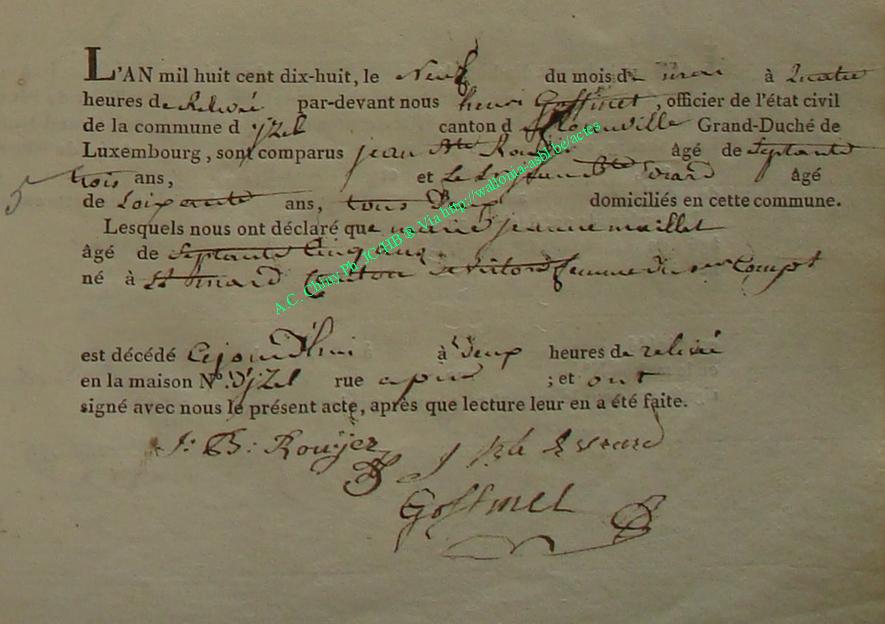 L'AN mil huit cent dix-huit, le Neuf du mois de mai à Quatre
heures de Relevé par-devant nous henri Goffinet, officier de l'état civil
de la commune d'yzel canton d florenville Grand-Duché de
Luxembourg, sont comparus jean Bte Rouyer âgé de Septante
5 trois ans, et Le Sr jean Bte Evrard âgé
de Soixante ans, tous Deux domiciliés en cette commune.
Lesquels nous ont déclaré que marie jeanne maillet
âgé de Septante Cinq ans
né à St mard Canton de virton femme du 1er Compt
est décédé Cejourd'hui à Deux heures de relevé
en la maison N° D'yzel rue ; et ont
signé avec nous le présent acte, après que lecture leur en a été faite.
J: B: Rouyer J Bte Evrard
Goffinet
A.C. Chiny Ph. JC-HB ® Via http://wallonia-asbl.be/actes